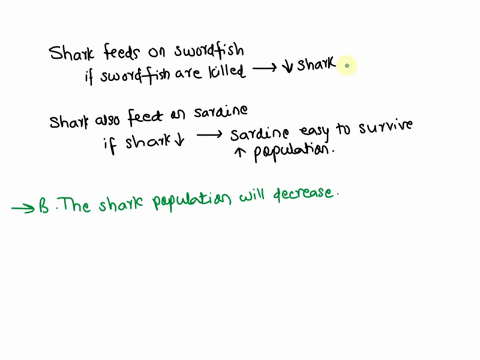 Shark feeds on swordfish
if swordfish are killed → ↓ shark
Shark also feed on sardine
if shark ↓ → Sardine easy to survive
↑ population.
→ B. The shark population will decrease.